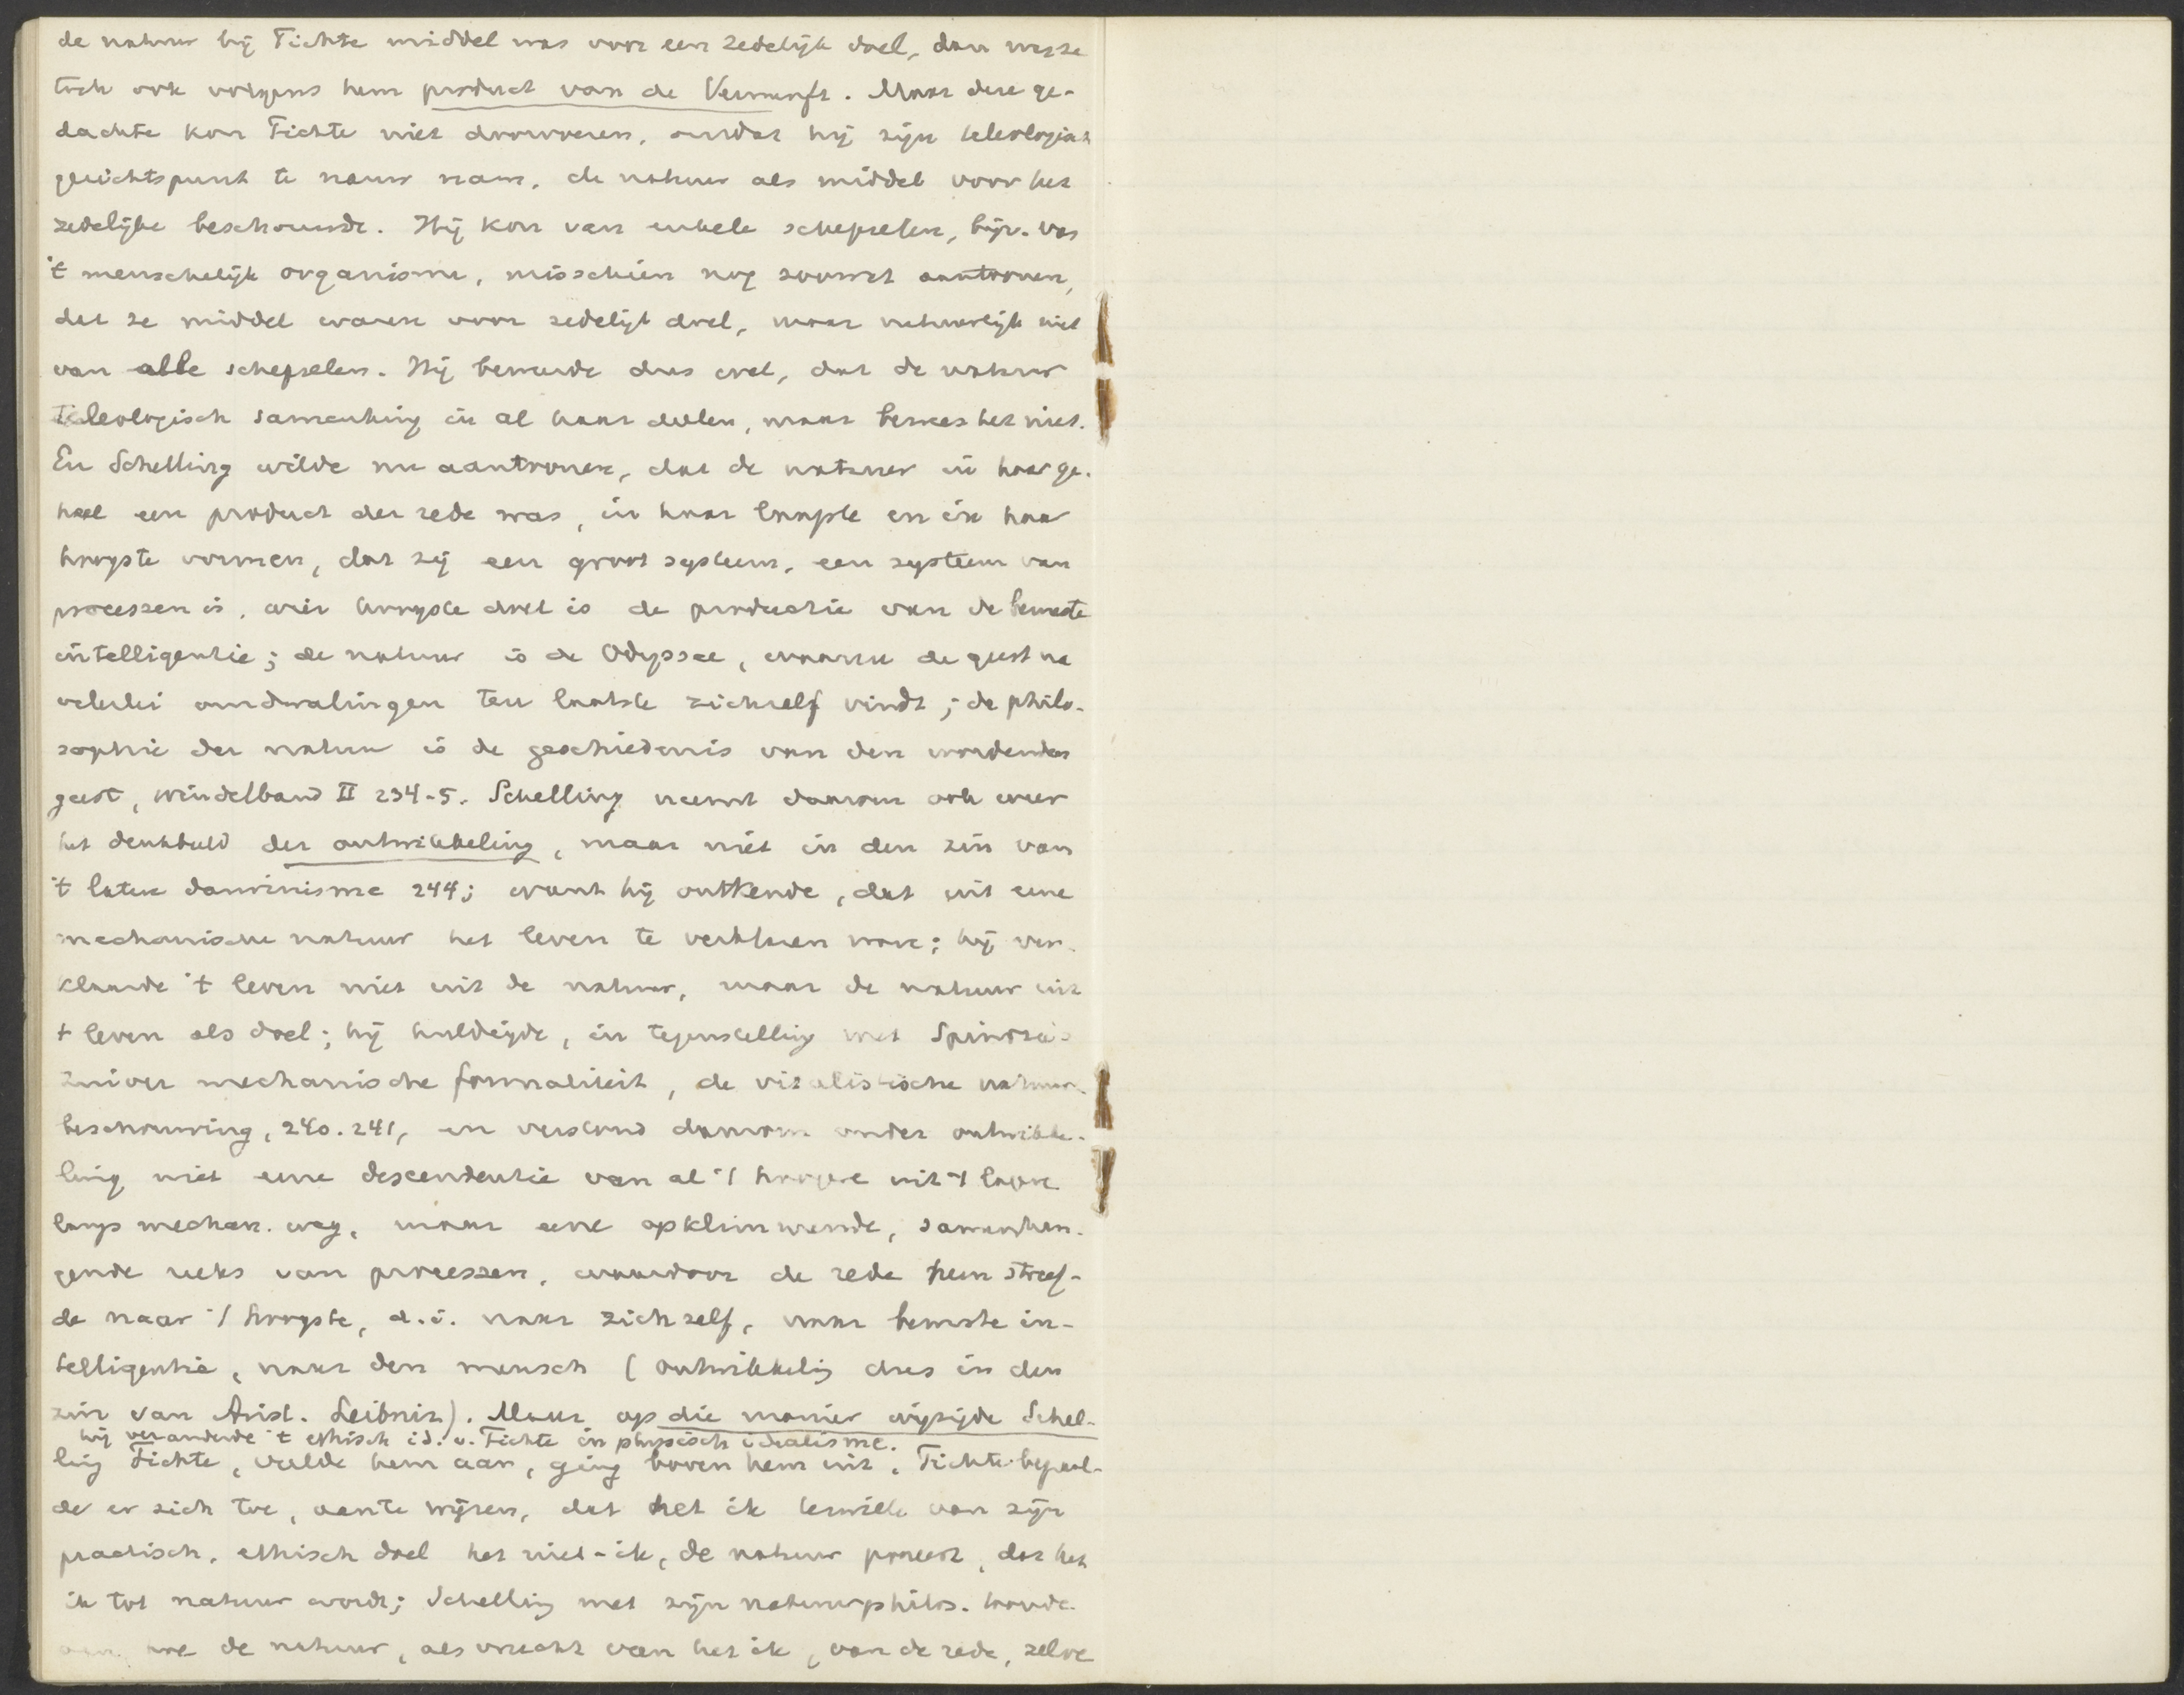 de natuur bij Fichte middel was voor een zedelijk doel, dan was ze
toch ook volgens hem product van de Vernunft. Maar deze ge-
dachte kon Fichte niet doorvoeren, omdat hij zijn teleologisch
gezichtspunt te nauw nam, de natuur als middel voor het
zedelijke beschouwde. Hij kon van enkele schepselen, bijv. van
't menschelijk organisme, misschien nog zoowat aantoonen,
dat ze middel waren voor zedelijk doel, maar natuurlijk niet
van alle schepselen. Hij beweerde dus wel, dat de natuur
teleologisch samenhing in al haar deelen, maar bewees het niet.
En Schelling wilde nu aantoonen, dat de natuur in haar ge-
heel een product der rede was, in haar laagste en in haar
hoogste vormen, dat zij een groot systeem, een systeem van
processen is, wier hoogste doel is de productie van de bewuste
intelligentie; de natuur is de Odyssee, waarin de geest na
velerlei omdwalingen ten laatste zichzelf vindt; de philo-
sophie der natuur is de geschiedenis van den wordenden
geest, Windelband II 234-5. Schelling neemt daarom ook weer
het denkbeeld der ontwikkeling, maar niet in den zin van
't latere darwinisme 244; want hij ontkende, dat uit eene
mechanische natuur het leven te verklaren ware; hij ver-
klaarde 't leven niet uit de natuur, maar de natuur uit
't leven als doel; hij huldigde, in tegenstelling met Spinoza's
zuiver mechanische formaliteit, de vitalistische natuur-
beschouwing, 240. 241, en verstond daarom onder ontwikke-
ling niet eene descendentie van al 't hoogere uit 't lagere
langs mechan. weg, maar eene opklimmende, samenhan-
gende reeks van processen, waardoor de rede heen streef-
de naar 't hoogste, d.i. naar zichzelf, naar bewuste in-
telligentie, naar den mensch (ontwikkeling dus in den
zin van Arist. Leibniz). Maar op die manier wijzigde Schel-
hij veranderde 't ethisch id. v. Fichte in physisch idealisme.
ling Fichte, vulde hem aan, ging boven hem uit. Fichte bepaal-
de er zich toe, aan te wijzen, dat het ik terwille van zijn
practisch, ethisch doel het niet-ik, de natuur poneert, dat het
ik tot natuur wordt; Schelling met zijn natuurphilos. toonde
aan, hoe de natuur, als vrucht van het ik, van de rede, zelve